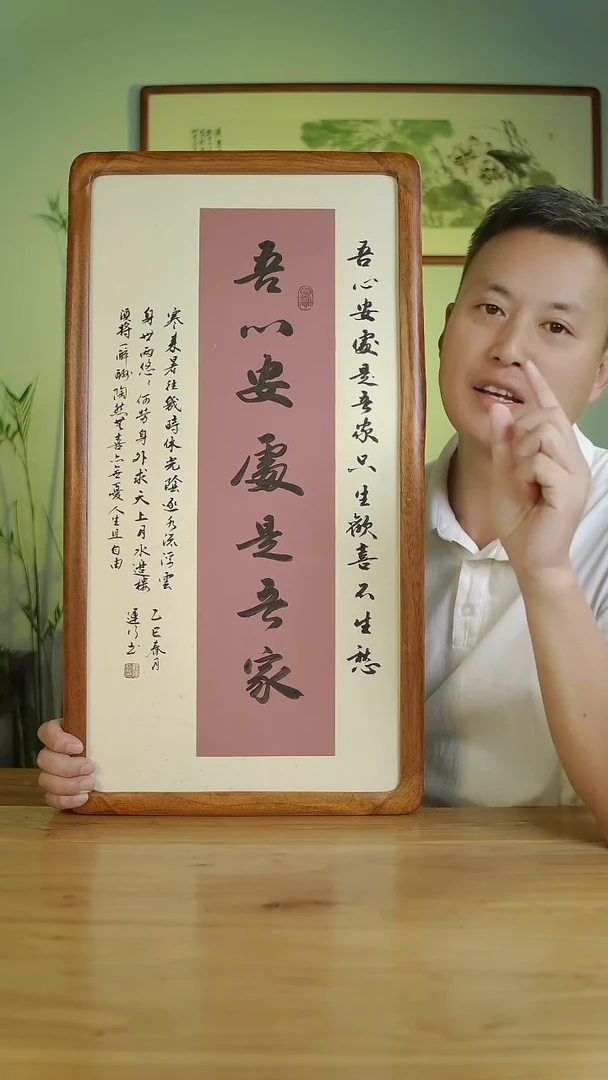 吾心安處是吾家只生歡喜不生愁
吾心安處是吾家
寒来暑往幾時休光陰逐水流浮雲
身世兩悠々何劳身外求天上月水邊樓
須將一醉酬陶然無喜亦無憂人生且自由
乙巳春月